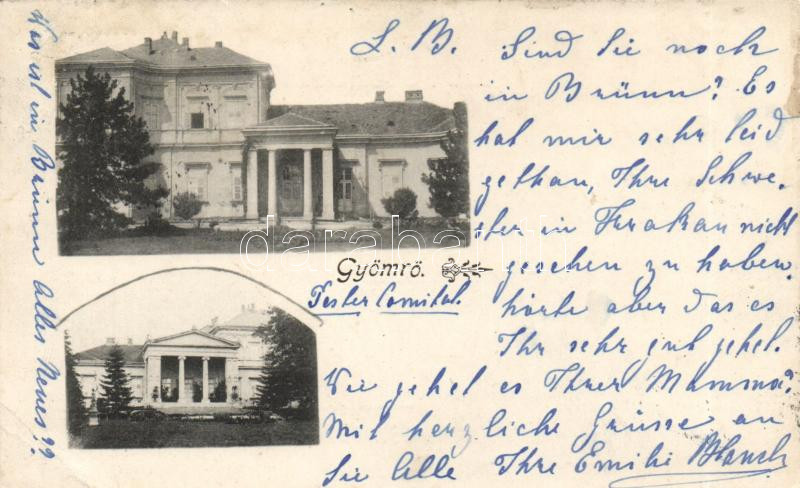 L. B. Sind Sie noch
in Brünn? Es
hat mir sehr leid
gethan, Ihre Schwe-
ster in Krakau nicht
gesehen zu haben,
hörte aber das es
Ihr sehr gut gehet.
Wie gehet es Ihrer Mamma?
Mit herzliche Grüsse an
Sie Alle Ihre Emilie
Gyömrő.
Pester Comitat.
Was ist in Brünn Alles Neues??
darabanth